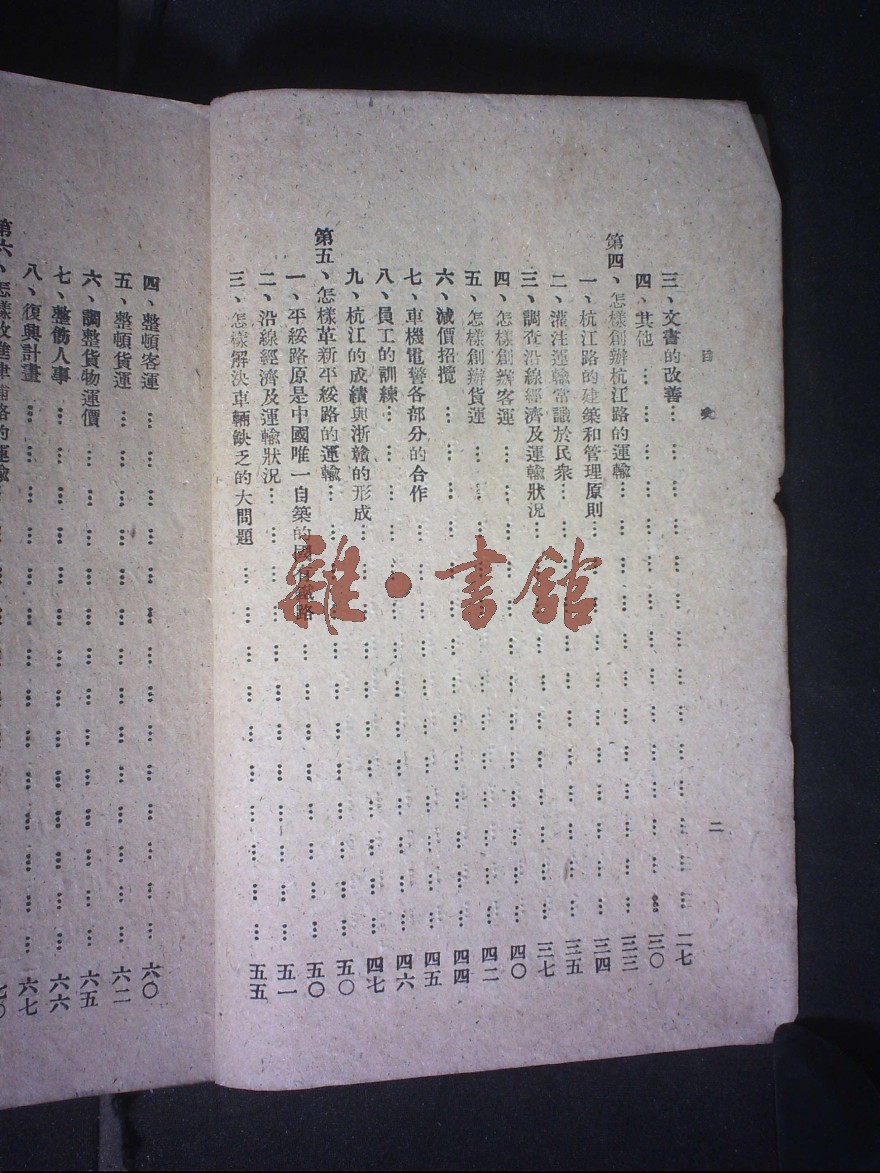 目次
二
三、文書的改善………二七
四、其他………三〇
第四、怎樣創辦杭江路的運輸………三三
一、杭江路的建築和管理原則………三四
二、灌注運輸常識於民衆………三五
三、調查沿線經濟及運輸狀況………三七
四、怎樣創辦客運………四〇
五、怎樣創辦貨運………四二
六、減價招攬………四四
七、車機電警各部分的合作………四五
八、員工的訓練………四六
九、杭江的成績與浙贛的形成………四七
第五、怎樣革新平綏路的運輸………五〇
一、平綏路原是中國唯一自築的國有鐵路………五〇
二、沿線經濟及運輸狀況………五一
三、怎樣解決車輛缺乏的大問題………五五
四、整頓客運………六〇
五、整頓貨運………六二
六、調整貨物運價………六五
七、整飭人事………六六
八、復興計畫………六七
第六、怎樣改進津浦路的運輸………七〇
雜·書館